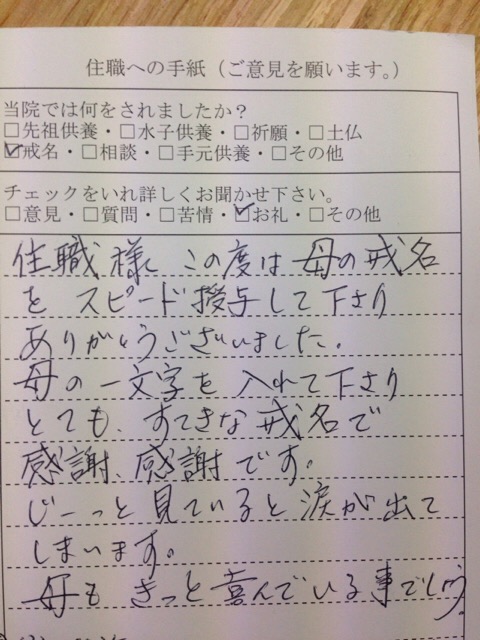 住職への手紙（ご意見を願います。）
当院では何をされましたか？
□先祖供養・□水子供養・□祈願・□土仏
☑戒名・□相談・□手元供養・□その他
チェックをいれ詳しくお聞かせ下さい。
□意見・□質問・□苦情・☑お礼・□その他
住職様 この度は母の戒名
を スピード授与して下さり
ありがとうございました。
母の一文字を入れて下さり
とても、すてきな戒名で
感謝、感謝です。
じーっと見ていると涙が出て
しまいます。
母も きっと喜んでいる事でしょう